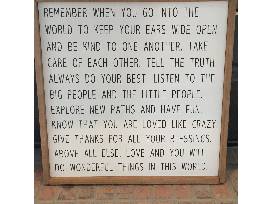 REMEMBER WHEN YOU GO INTO THE
WORLD TO KEEP YOUR EARS WIDE OPEN
AND BE KIND TO ONE ANOTHER. TAKE
CARE OF EACH OTHER. TELL THE TRUTH
ALWAYS DO YOUR BEST. LISTEN TO THE
BIG PEOPLE AND THE LITTLE PEOPLE.
EXPLORE NEW PATHS AND HAVE FUN.
KNOW THAT YOU ARE LOVED LIKE CRAZY.
GIVE THANKS FOR ALL YOUR BLESSINGS.
ABOVE ALL ELSE, LOVE AND YOU WILL
DO WONDERFUL THINGS IN THIS WORLD.